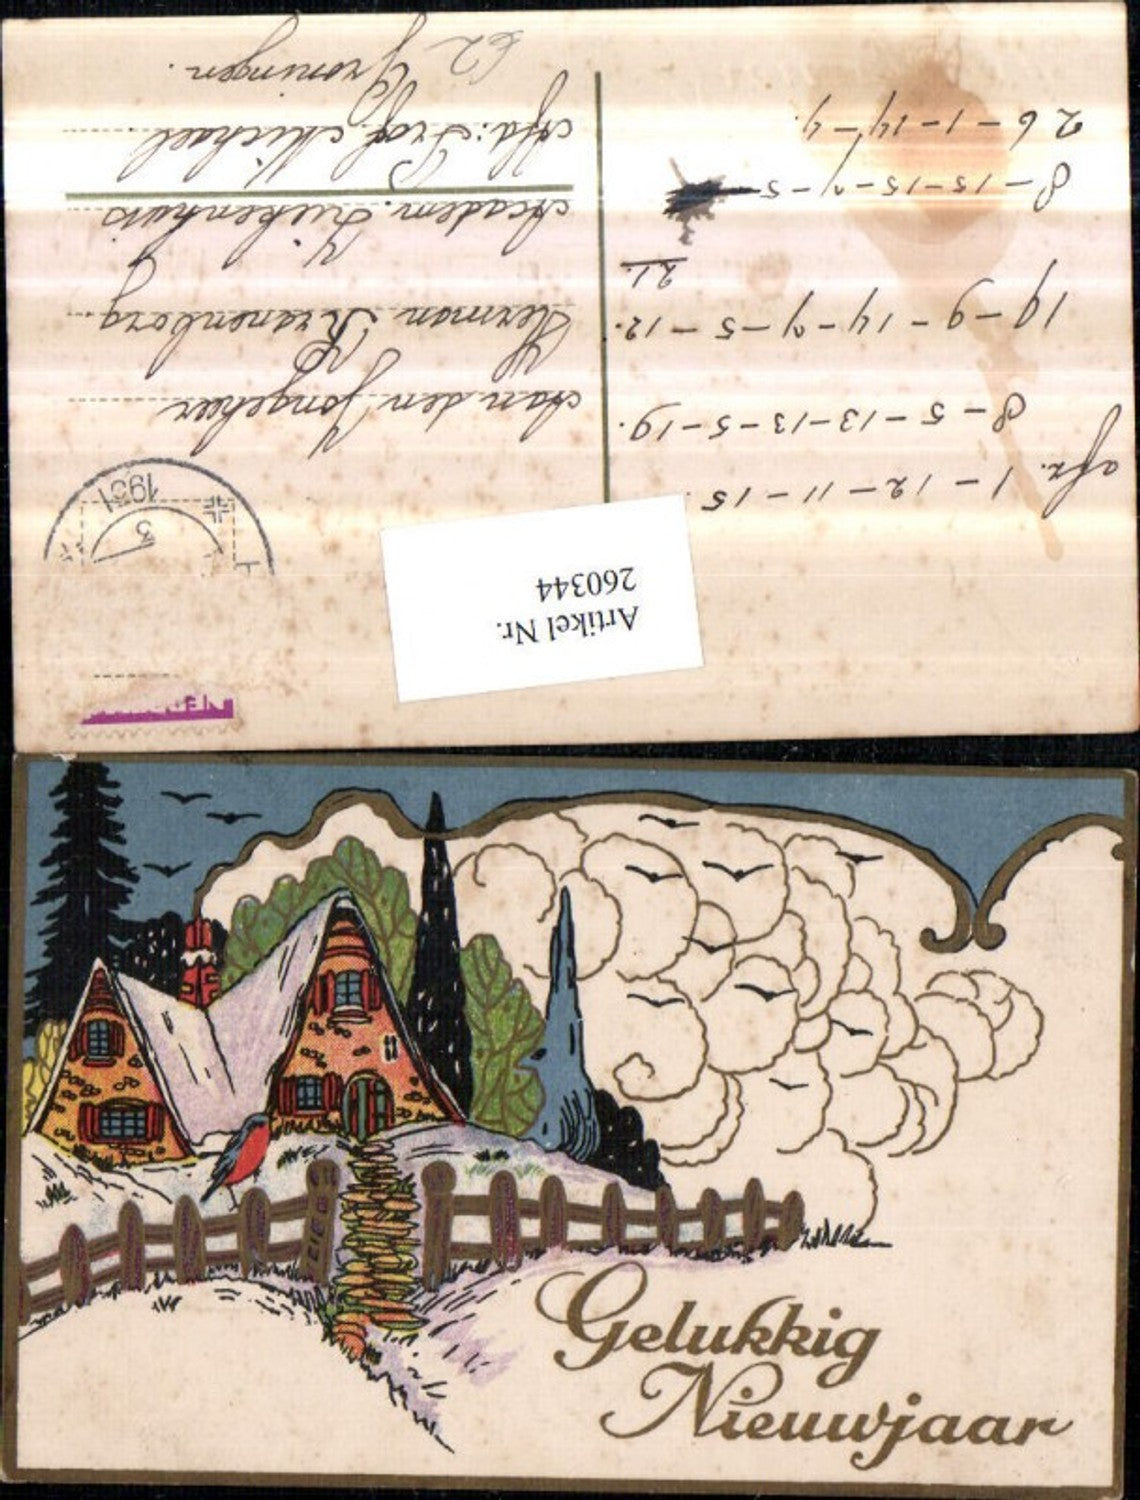 Artikel Nr.
260344
1931
3
afz. 1-12-11-15.
8-5-13-13-5-19.
19-9-14-7-5-12.
21.
8-15-15-7-5-
26-1-14-4.
Aan den Jongeheer
Herman Kranenborg.
Academ. Ziekenhuis
Afd: Prof. Michael.
62 Groningen.
Gelukkig
Nieuwjaar